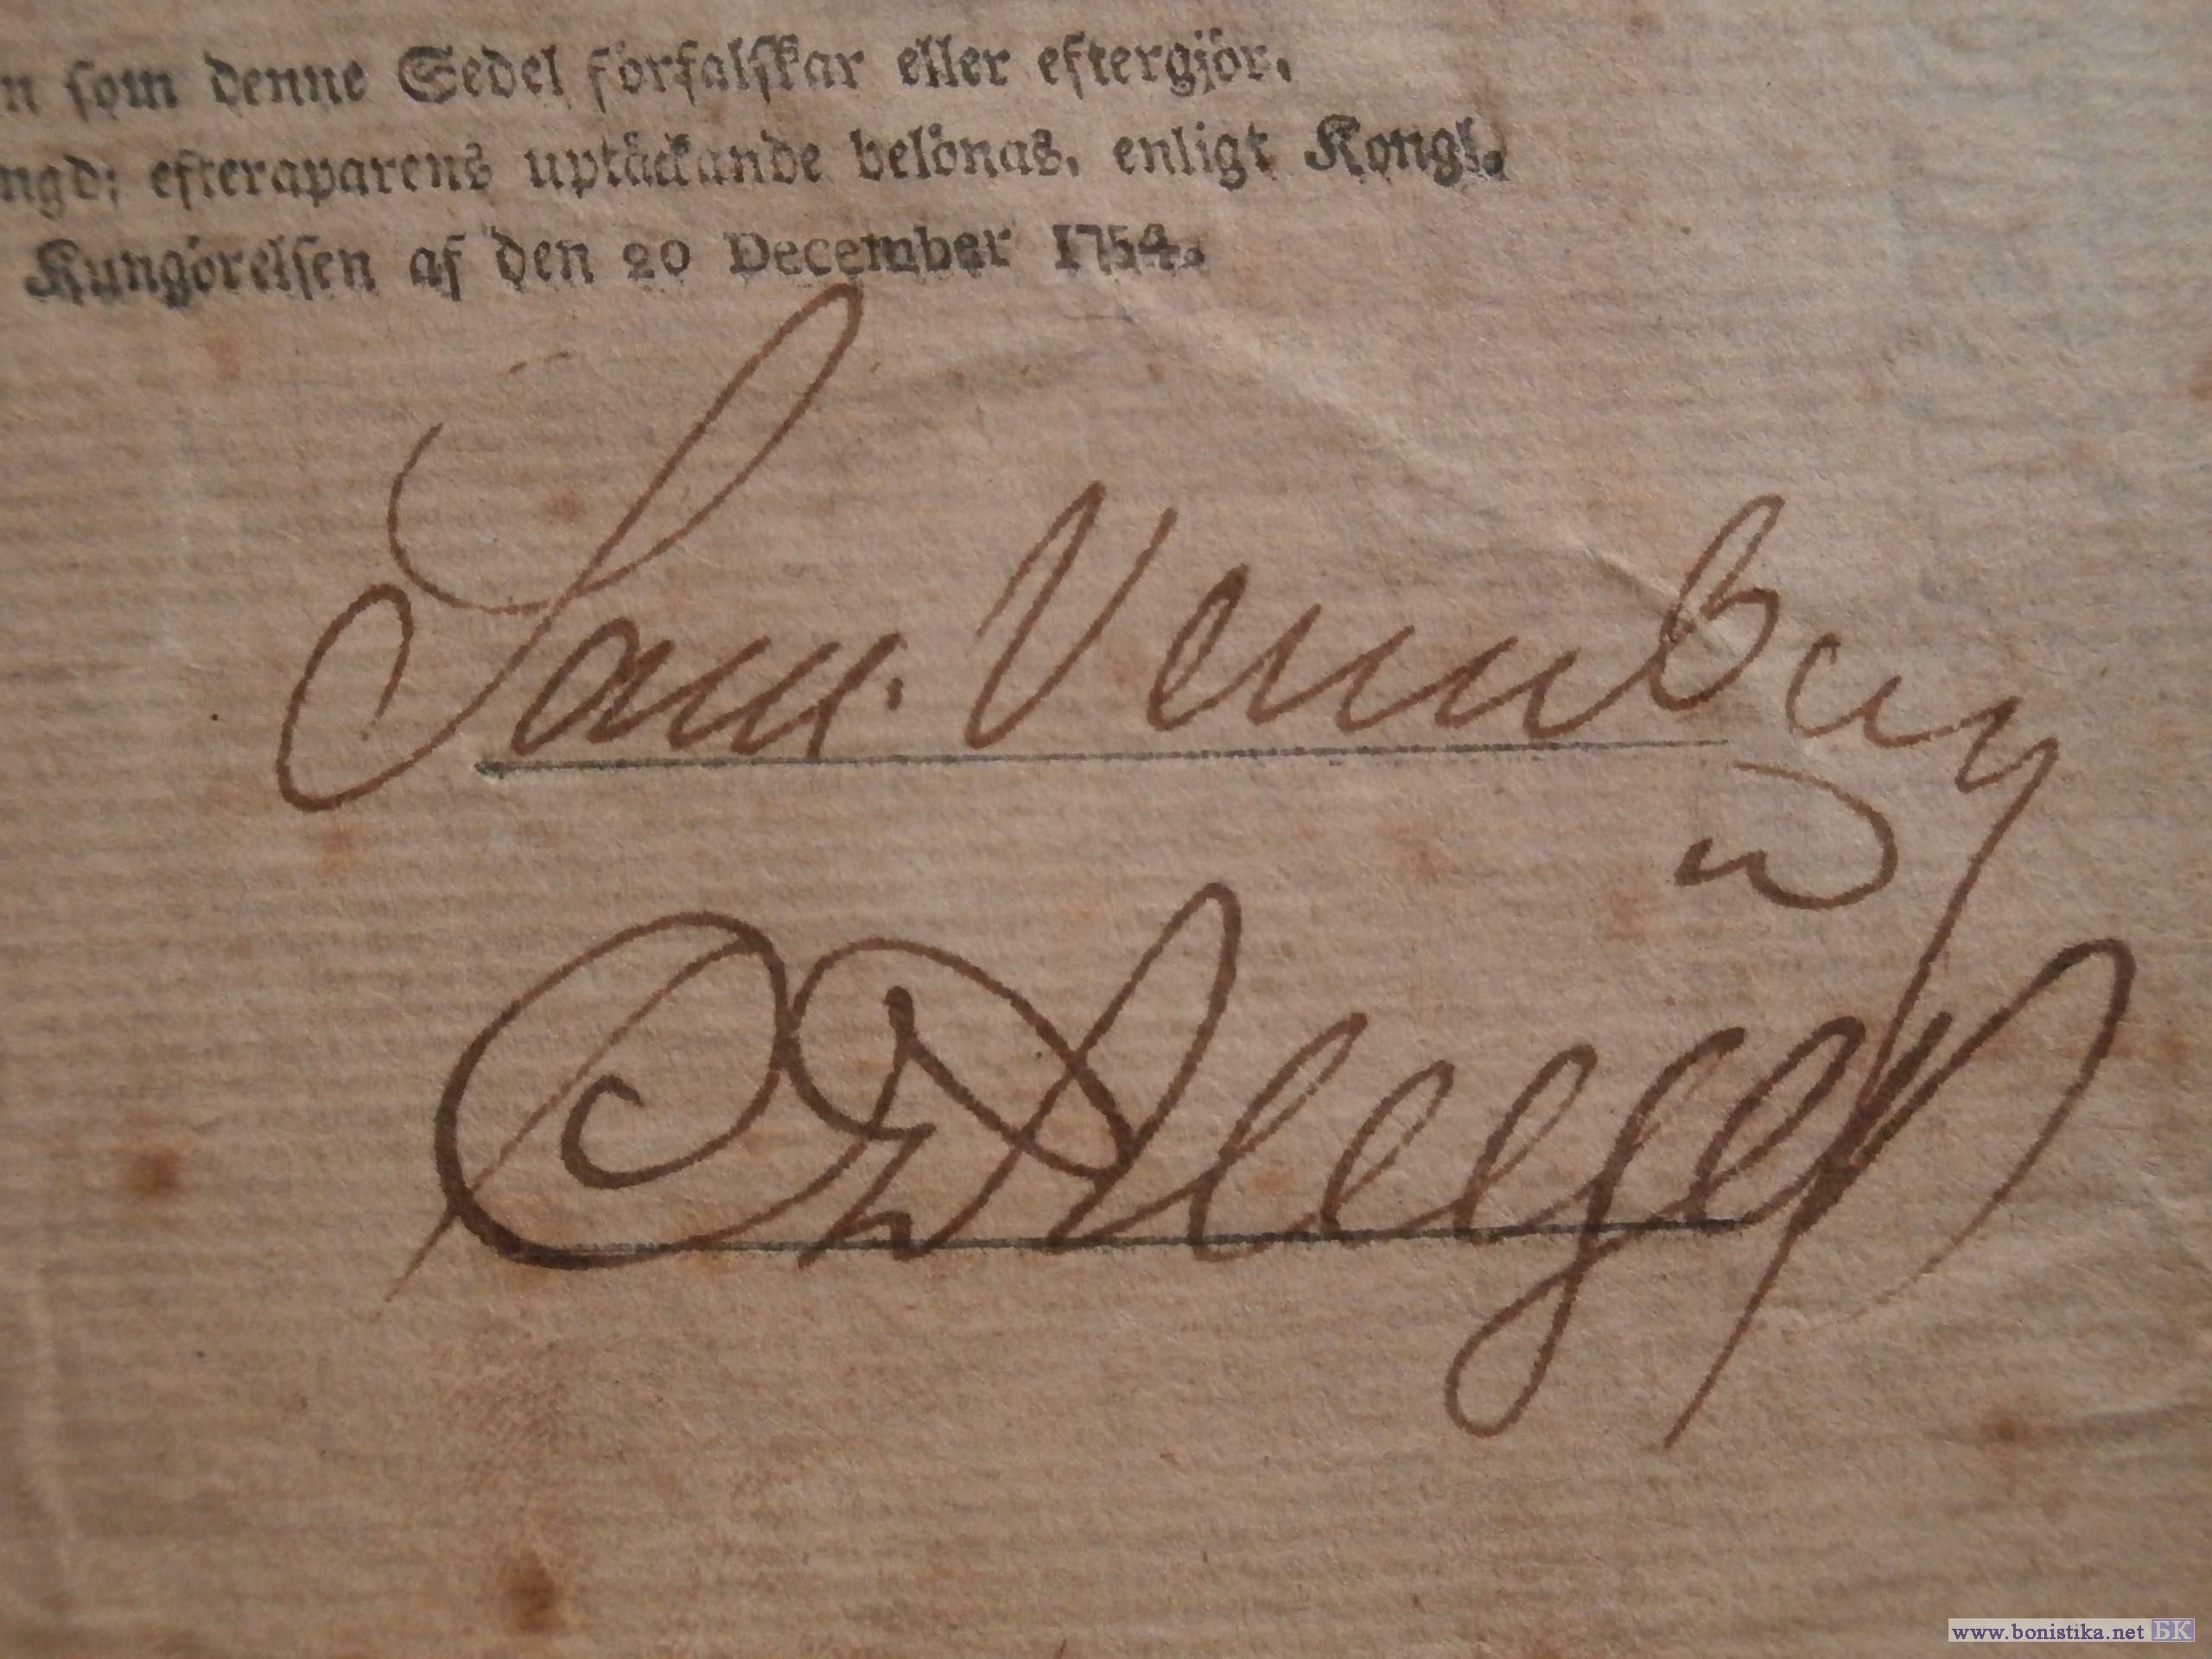 n som denne Sedel förfalskar eller eftergjör,
ngd; efteraparens uptäckande belönas, enligt Kongl.
Kungörelsen af den 20 December 1754.
Sam.
www.bonistika.net БК